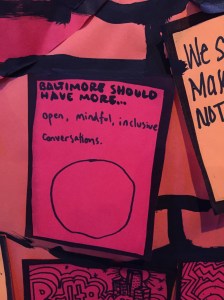 BALTIMORE SHOULD
HAVE MORE...
open, mindful, inclusive
conversations.
We S
Mak
NOT